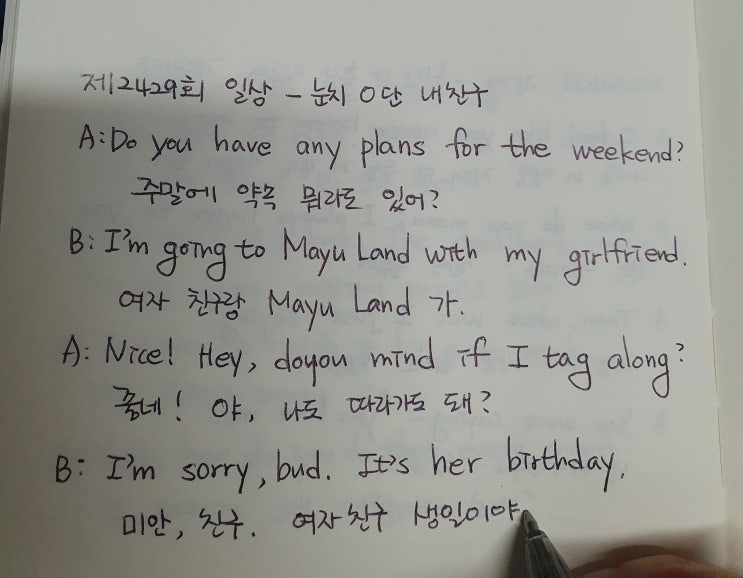 제2429회 일상 - 눈치 0단 내친구
A: Do you have any plans for the weekend?
주말에 약속 뭐라도 있어?
B: I'm going to Mayu Land with my girlfriend.
여자 친구랑 Mayu Land 가.
A: Nice! Hey, do you mind if I tag along?
좋네! 야, 나도 따라가도 돼?
B: I'm sorry, bud. It's her birthday.
미안, 친구. 여자친구 생일이야